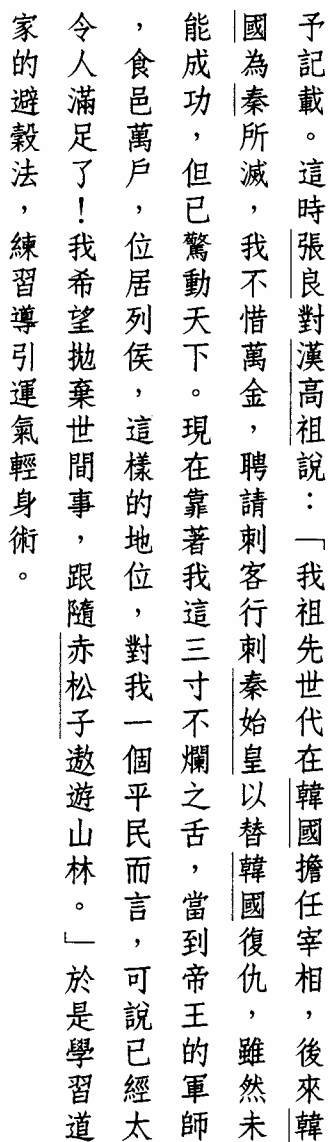 予記載。這時張良對漢高祖說：「我祖先世代在韓國擔任宰相，後來韓
國為秦所滅，我不惜萬金，聘請刺客行刺秦始皇以替韓國復仇，雖然未
能成功，但已驚動天下。現在靠著我這三寸不爛之舌，當到帝王的軍師
，食邑萬戶，位居列侯，這樣的地位，對我一個平民而言，可說已經太
令人滿足了！我希望拋棄世間事，跟隨赤松子遨遊山林。」於是學習道
家的避穀法，練習導引運氣輕身術。